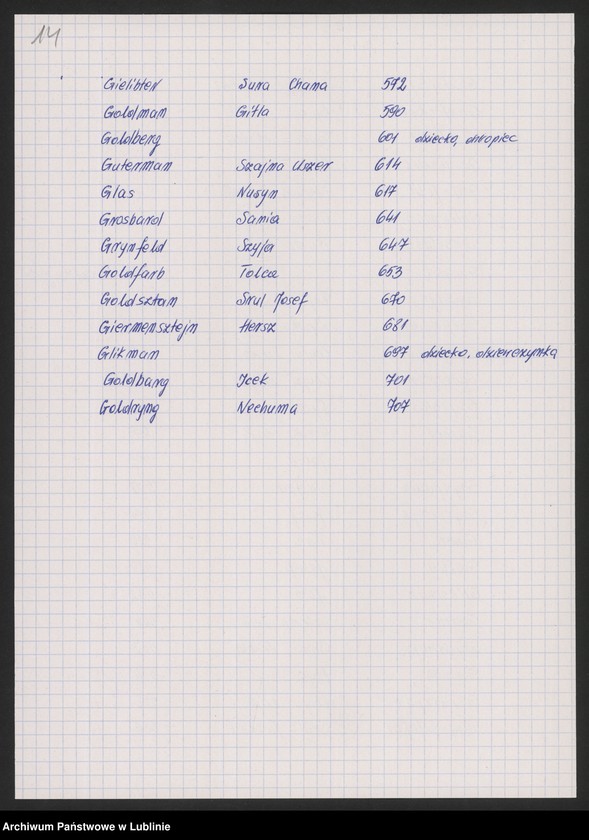 14
Gielibter Sura Chama 592
Goldman Gitla 590
Goldberg 601 dziecko, chłopiec
Guterman Szajma Uszer 614
Glas Nusyn 617
Grosbard Sania 641
Grynfeld Szyja 647
Goldfarb Tolca 653
Goldsztan Srul Josef 670
Giermensztejn Hersz 681
Glikman 697 dziecko, dziewczynka
Goldbarg Icek 701
Goldryng Nechuma 707
Archiwum Państwowe w Lublinie